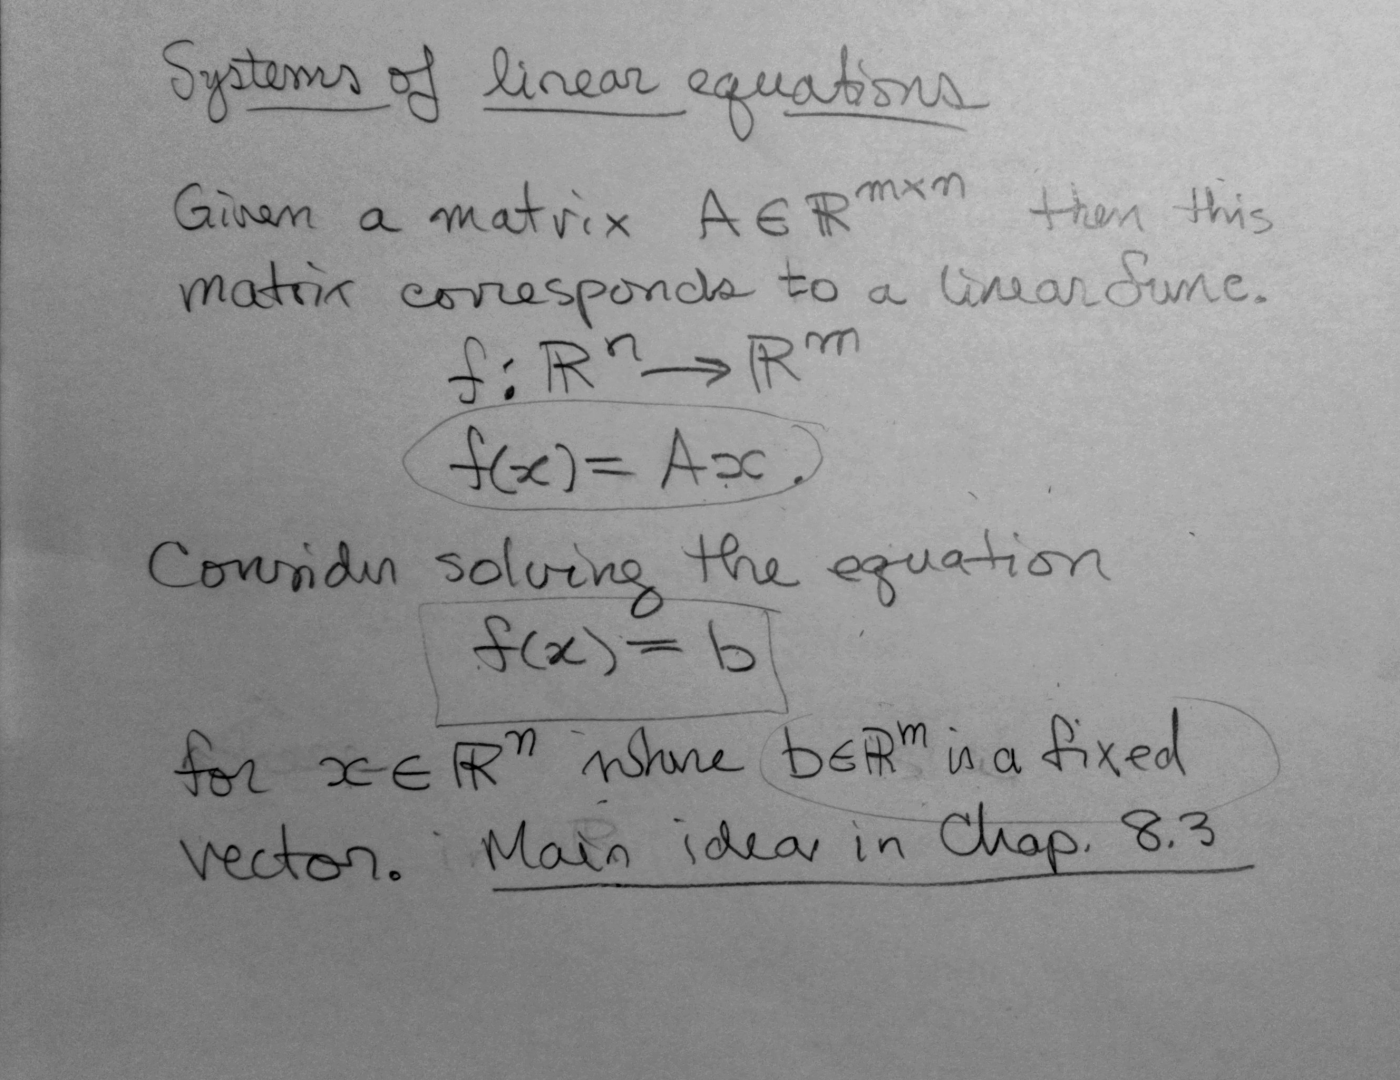 Systems of linear equations
Given a matrix A ∈ ℝ^{m×n} then this
matrix corresponds to a linear func.
f: ℝ^n → ℝ^m
f(x) = Ax.
Consider solving the equation
f(x) = b
for x ∈ ℝ^n where b ∈ ℝ^m is a fixed
vector. Main idea in Chap. 8.3